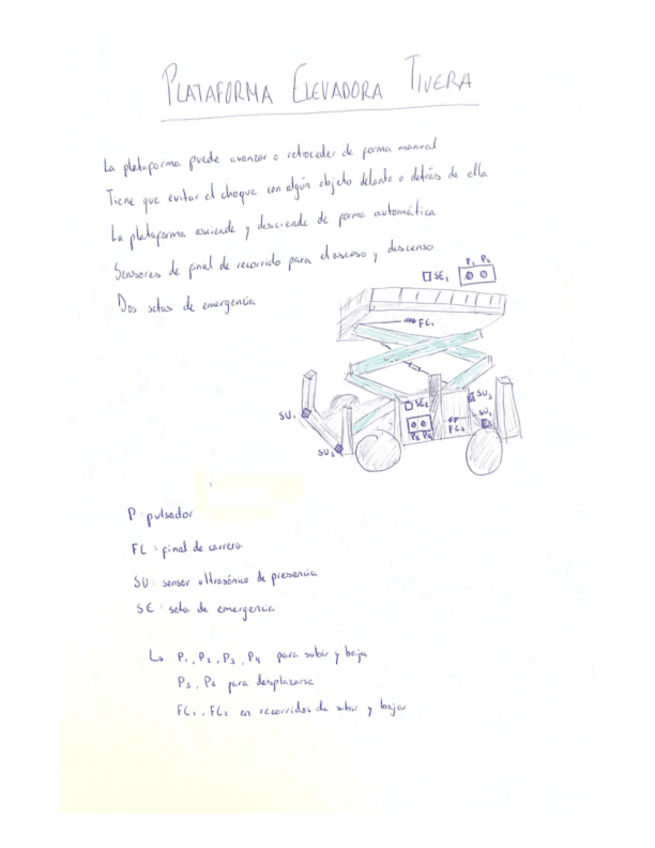 PLATAFORMA ELEVADORA TIJERA
La plataforma puede avanzar o retroceder de forma manual
Tiene que evitar el choque con algún objeto delante o detrás de ella
La plataforma asciende y desciende de forma automática
Sensores de final de recorrido para el ascenso y descenso
Dos setas de emergencia
P1 P2
SE1
FC1
SU3
SE2
SU1
SU4
FC2
P3 P4
SU2
P: pulsador
FC: final de carrera
SU: sensor ultrasónico de presencia
SE: seta de emergencia
↳ P1, P2, P3, P4 para subir y bajar
P5, P6 para desplazarse
FC1, FC2 en recorridos de subir y bajar